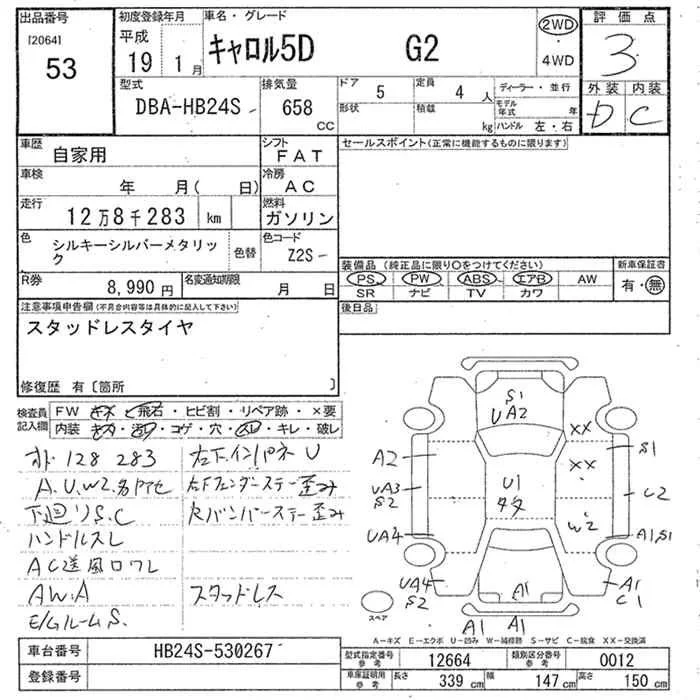 出品番号
[2064]
53
初度登録年月
平成
19 1月
車名・グレード
キャロル5D G2
2WD
・
4WD
評価点
3
外装 内装
D C
型式
DBA-HB24S
排気量
658
CC
ドア 5
形状
定員 4 人
積載 kg
ディーラー・並行
モデル年式 年
ハンドル 左・右
車歴
自家用
シフト
FAT
車検
年 月( 日)
冷房
AC
走行
12万8千283 km
燃料
ガソリン
色
シルキーシルバーメタリック
色替
色コード
Z2S
R券
8,990円
名変通知期限
月 日
セールスポイント(正常に機能するものに限ります)
装備品(純正品に限り○をつけてください)
PS PW ABS エアB AW
SR ナビ TV カワ
新車保証書
有・無
後日品
注意事項申告欄(不具合内容等は具体的に記入して下さい)
スタッドレスタイヤ
修復歴 有〔箇所 〕
検査員記入欄
FW キズ・飛石・ヒビ割・リペア跡・×要
内装 キズ・汚れ・コゲ・穴・スレ・キレ・破レ
オド 128 283
左下インパネ U
A.U.W2.各所
左Fフェンダーステー歪み
下廻りS.C
Rバンパーステー歪み
ハンドルスレ
AC送風口ワレ
AW.A
スタッドレス
E/GルームS.
S1
UA2
XX
S1
A2
XX
UA3
S2
U1
タタ
C2
W2
UA4
A1,S1
UA4
S2
A1
A1
C1
A1
A1
スペア
A-キズ E-エクボ U-凹み W-補修跡 S-サビ C-腐食 XX-交換済
車台番号
HB24S-530267
登録番号
型式指定番号
参考
12664
類別区分番号
参考
0012
車庫証明用
参考
長さ 339 cm
幅 147 cm
高さ 150 cm